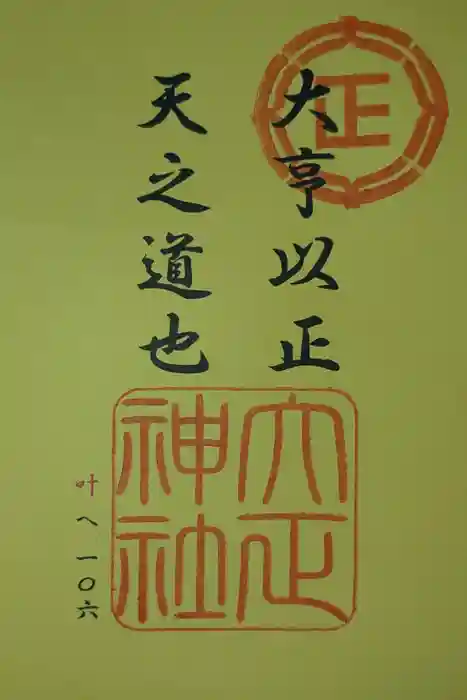 正
大亨以正
天之道也
大正
神社
叶へ一〇六